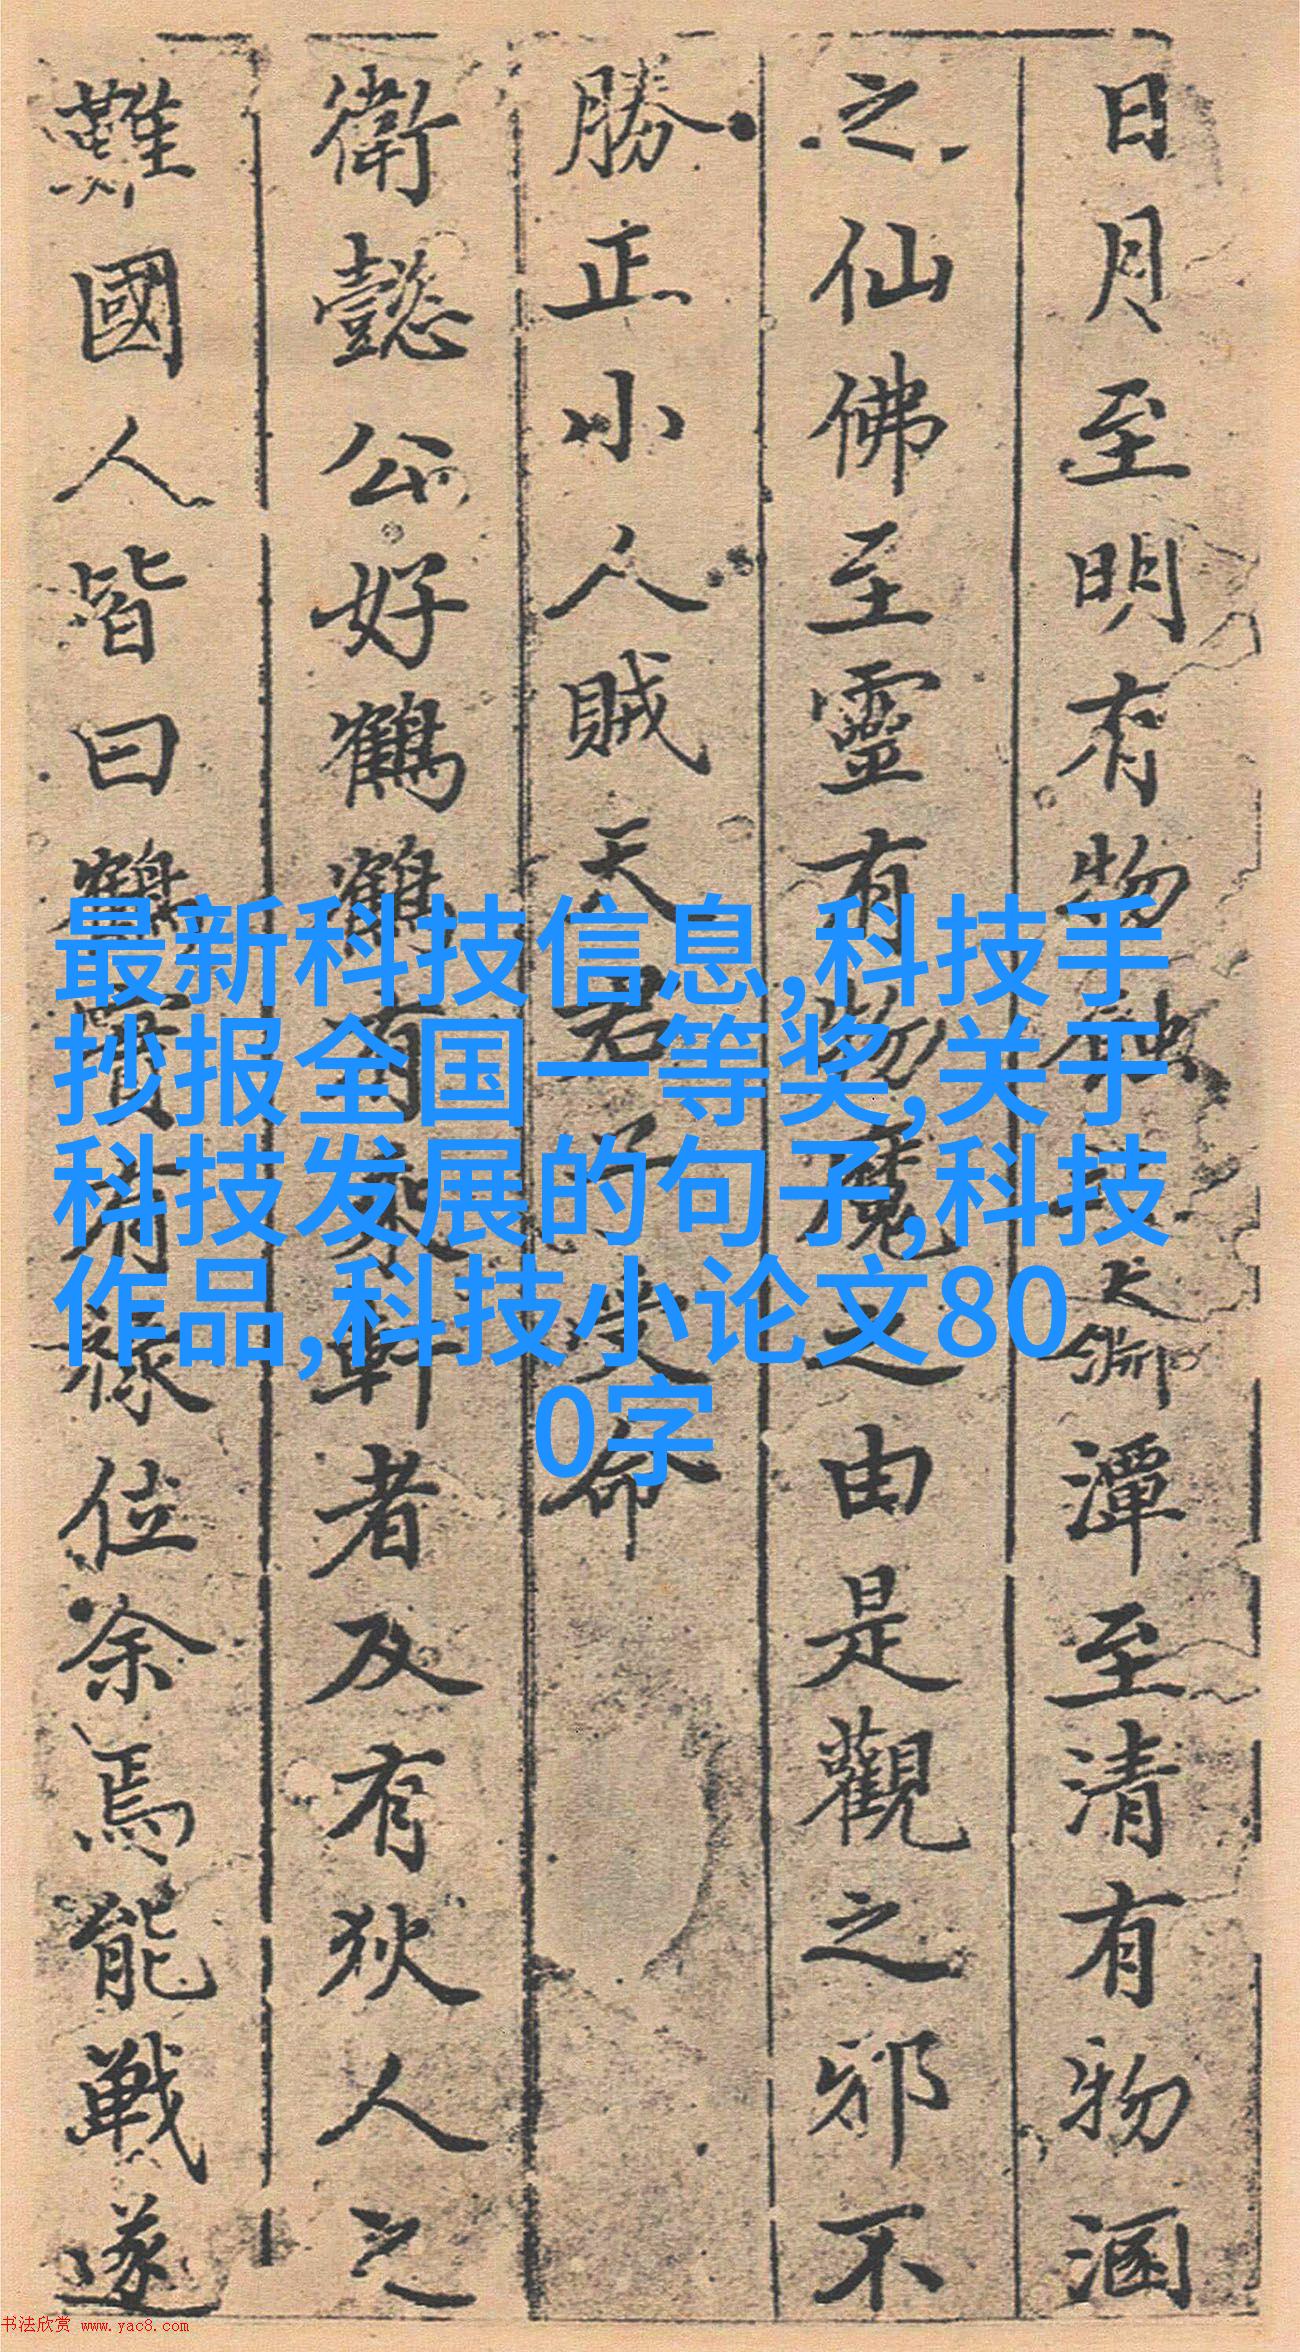 日月至明有物蝕之大淵潭至清有物涵
之仙佛至靈有物魔之由是觀之邪不
勝正小人賊天君子受命
衛懿公好鶴鶴有乘軒者及有狄人之
難國人皆曰鶴實有祿位余焉能戰遂
最新科技信息,科技手
抄报全国一等奖,关于
科技发展的句子,科技
作品,科技小论文80
0字
书法欣赏 www.yac8.com